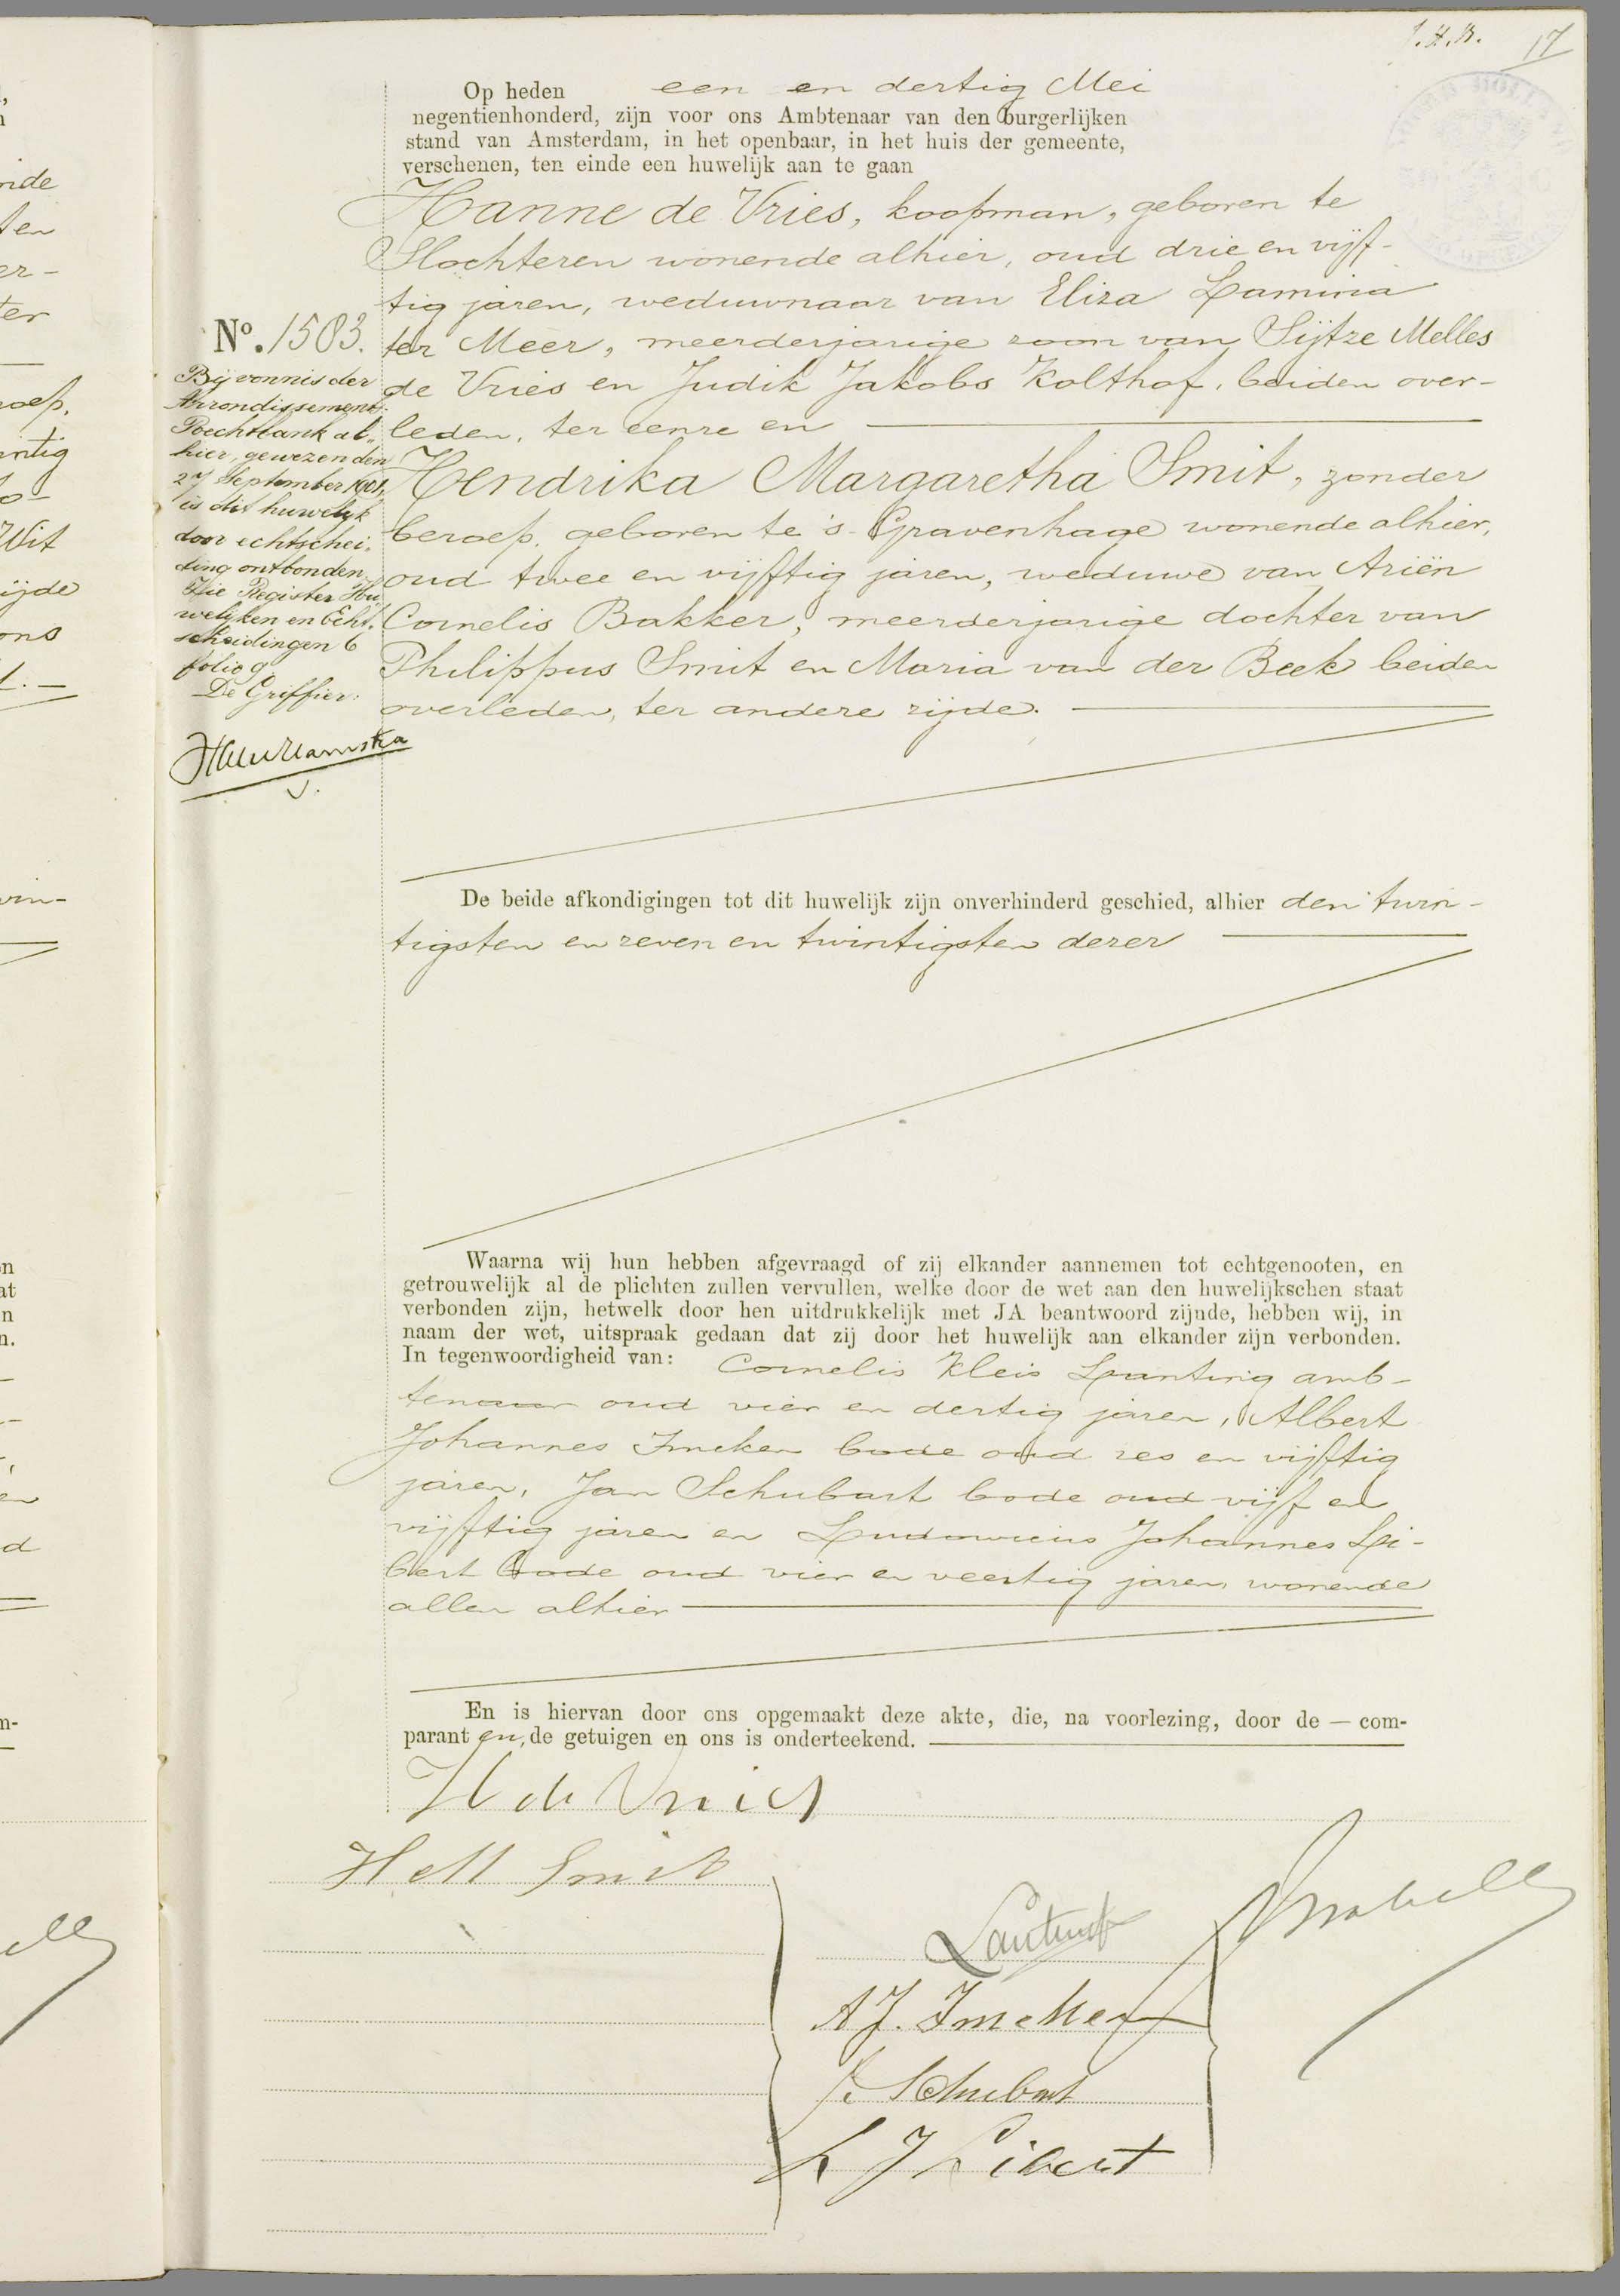 17
Op heden een en dertig Mei
negentienhonderd, zijn voor ons Ambtenaar van den burgerlijken
stand van Amsterdam, in het openbaar, in het huis der gemeente,
verschenen, ten einde een huwelijk aan te gaan
Hanne de Vries, koopman, geboren te
Slochteren wonende alhier, oud drie en vijf-
tig jaren, weduwnaar van Eliza Lamina
ter Meer, meerderjarige zoon van Sijtze Melles
de Vries en Judik Jakobs Kolthof, beiden over-
leden, ter eenre en
Hendrika Margaretha Smit, zonder
beroep, geboren te 's-Gravenhage wonende alhier,
oud twee en vijftig jaren, weduwe van Ariën
Cornelis Bakker, meerderjarige dochter van
Philippus Smit en Maria van der Beek beiden
overleden, ter andere zijde.
No. 1583.
Bij vonnis der
Arrondissements
Rechtbank al-
hier, gewezen den
27 September 1901,
is dit huwelijk
door echtschei-
ding ontbonden
Zie Register Hu-
welijken en Echt-
scheidingen 6
folio 9
De Griffier:
De beide afkondigingen tot dit huwelijk zijn onverhinderd geschied, alhier den twin-
tigsten en zeven en twintigsten dezer
Waarna wij hun hebben afgevraagd of zij elkander aannemen tot echtgenooten, en
getrouwelijk al de plichten zullen vervullen, welke door de wet aan den huwelijkschen staat
verbonden zijn, hetwelk door hen uitdrukkelijk met JA beantwoord zijnde, hebben wij, in
naam der wet, uitspraak gedaan dat zij door het huwelijk aan elkander zijn verbonden.
In tegenwoordigheid van: Cornelis Kleis Lanting amb-
tenaar oud vier en dertig jaren, Albert
Johannes Imeken bode oud zes en vijftig
jaren, Jan Schubart bode oud vijf en
vijftig jaren en Ludovicus Johannes Li-
bert bode oud vier en veertig jaren wonende
allen alhier
En is hiervan door ons opgemaakt deze akte, die, na voorlezing, door de — com-
parant en, de getuigen en ons is onderteekend.
H de Vries
H M Smit
Lanting
A J. Imeken
J. Schubart
L J Libert